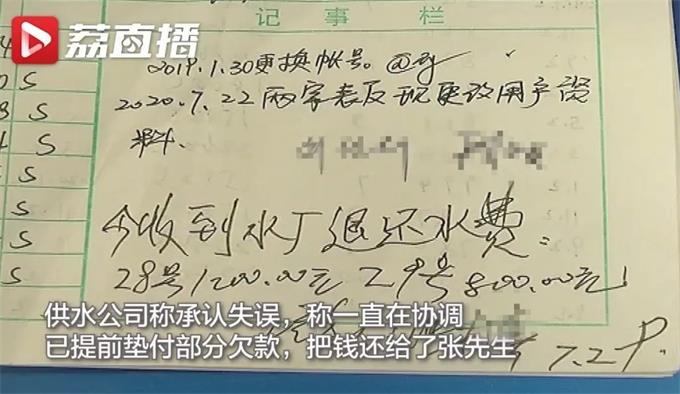 荔直播
记事栏
2019.1.30更换帐号。
2020.7.22两家表反现更改用户资
料、
今收到水厂退还水费:
28号1200.00元 29号800.00元
供水公司称承认失误，称一直在协调
已提前垫付部分欠款，把钱还给了张先生
7.29.
S
S
S
S
S
S
S